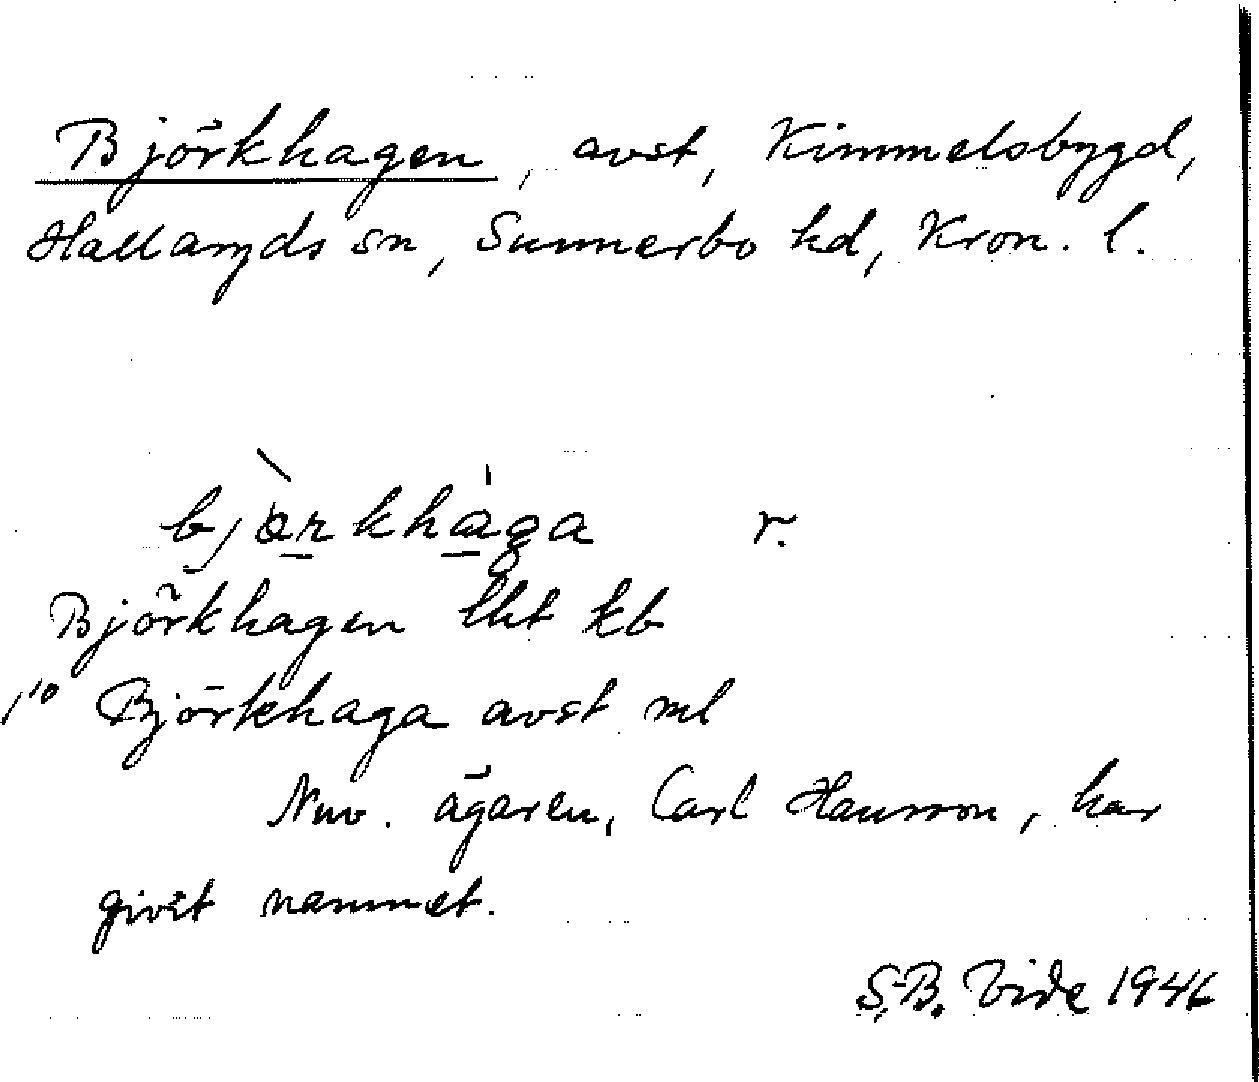 Björkhagen, avst, Kimmelsbygd,
Hallaryds sn, Sunnerbo hd, Kron. l.
bjàrkhága r.
Björkhagen lht kb
/10 Björkhaga avst ml
Nuv. ägaren, Carl Hansson, har
givit namnet.
S.-B. Vide 1946